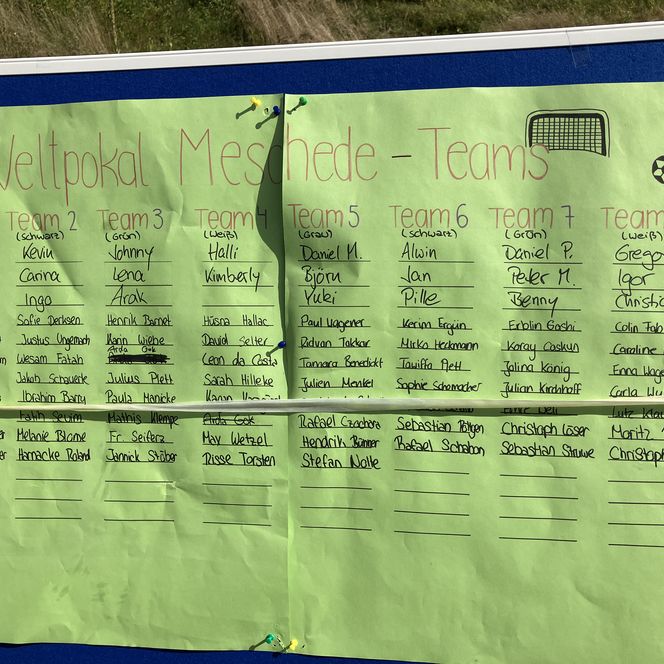 Weltpokal Meschede - Teams
Team 2 Team 3 Team 4 Team 5 Team 6 Team 7 Team
(schwarz) (Grün) (Weiß) (Grau) (schwarz) (Grün) (weiß)
Kevin Johnny Halli Daniel M. Alwin Daniel P. Grego
Carina Lena Kimberly Björn Jan Peter M. Igor
Ingo Arak Yuki Pille Benny Christi
Sofie Derksen Henrik Barnet Hüsna Hallac Paul Wagener Kerim Ergün Erblin Gashi Colin Fab
Justus Ungemach Karin Wiebe David Selter Ridvan Takkar Mirko Heckmann Koray Coskun Caroline
Arda Gok
Wesam Fatah Leon da Costa Tamara Benedickt Tawiffa Plett Jolina König Enna Wage
Jakob Schauerte Julius Plett Sarah Hilleke Julien Menkel Sophie Schomacher Julian Kirchhoff Carla
Ibrahim Barry Paula Hanicke Karan
Fatih Sevim Mathis Klempe Arda Gok Rafael Czochara Sebastian Pöttgen Christoph Löser Moritz
Melanie Blome Fr. Seifers May Wetzel Hendrik Bünner Rafael Schabon Sebastian Struwe Christoph
Harnacke Roland Jannick Stüber Risse Torsten Stefan Nolte